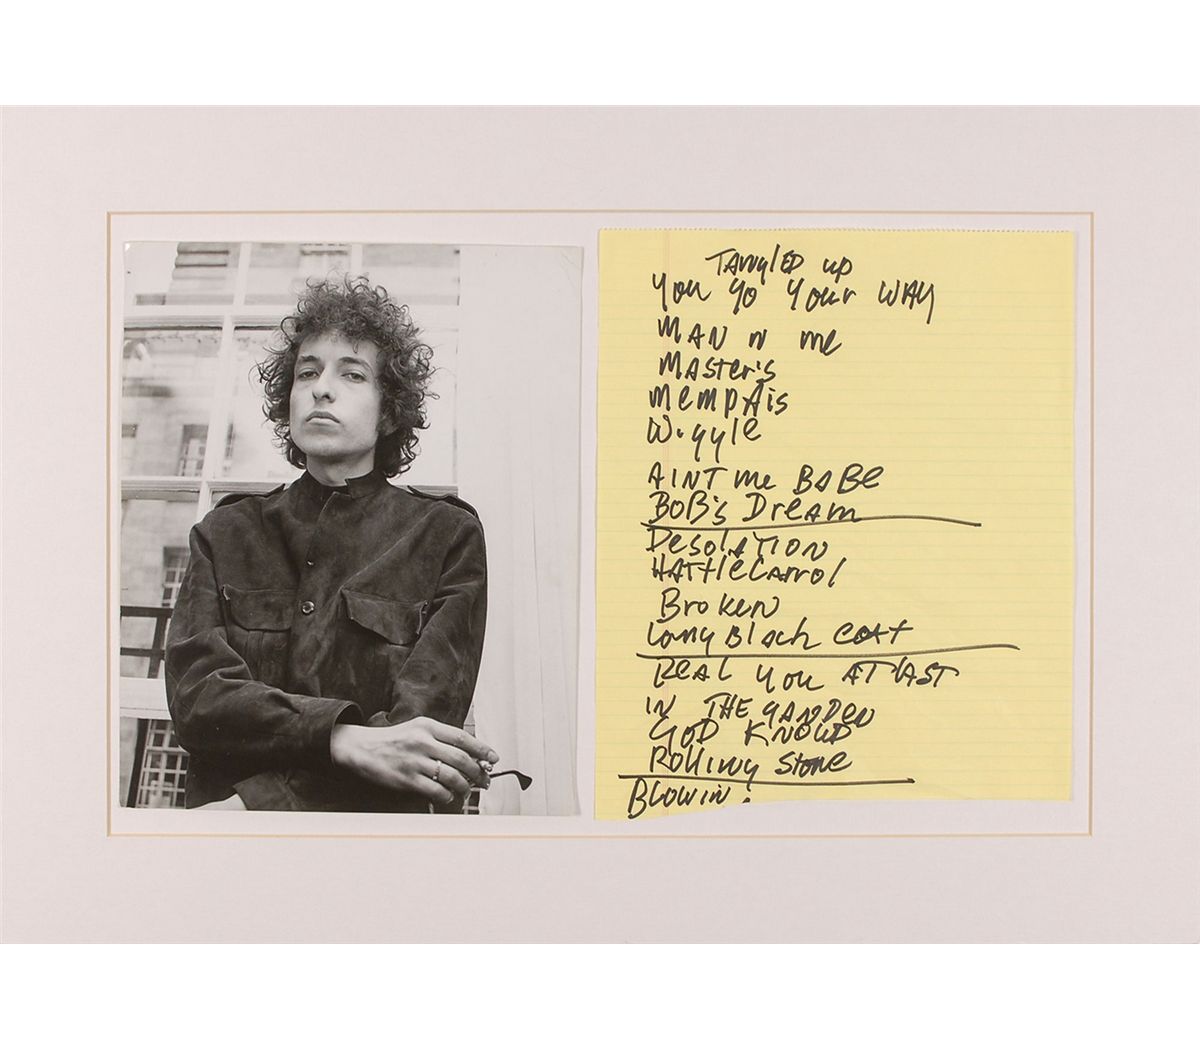 TANglED up
You go Your WAY
MAN N me
MAster's
MemphIs
Wiggle
AINT me BABE
BOB's Dream
DesolATION
HAttIeCarrol
Broken
Long Black coat
REAL You AT LAST
IN THE GARDEN
GOD KNOWS
Rolling Stone
BLOWIN.